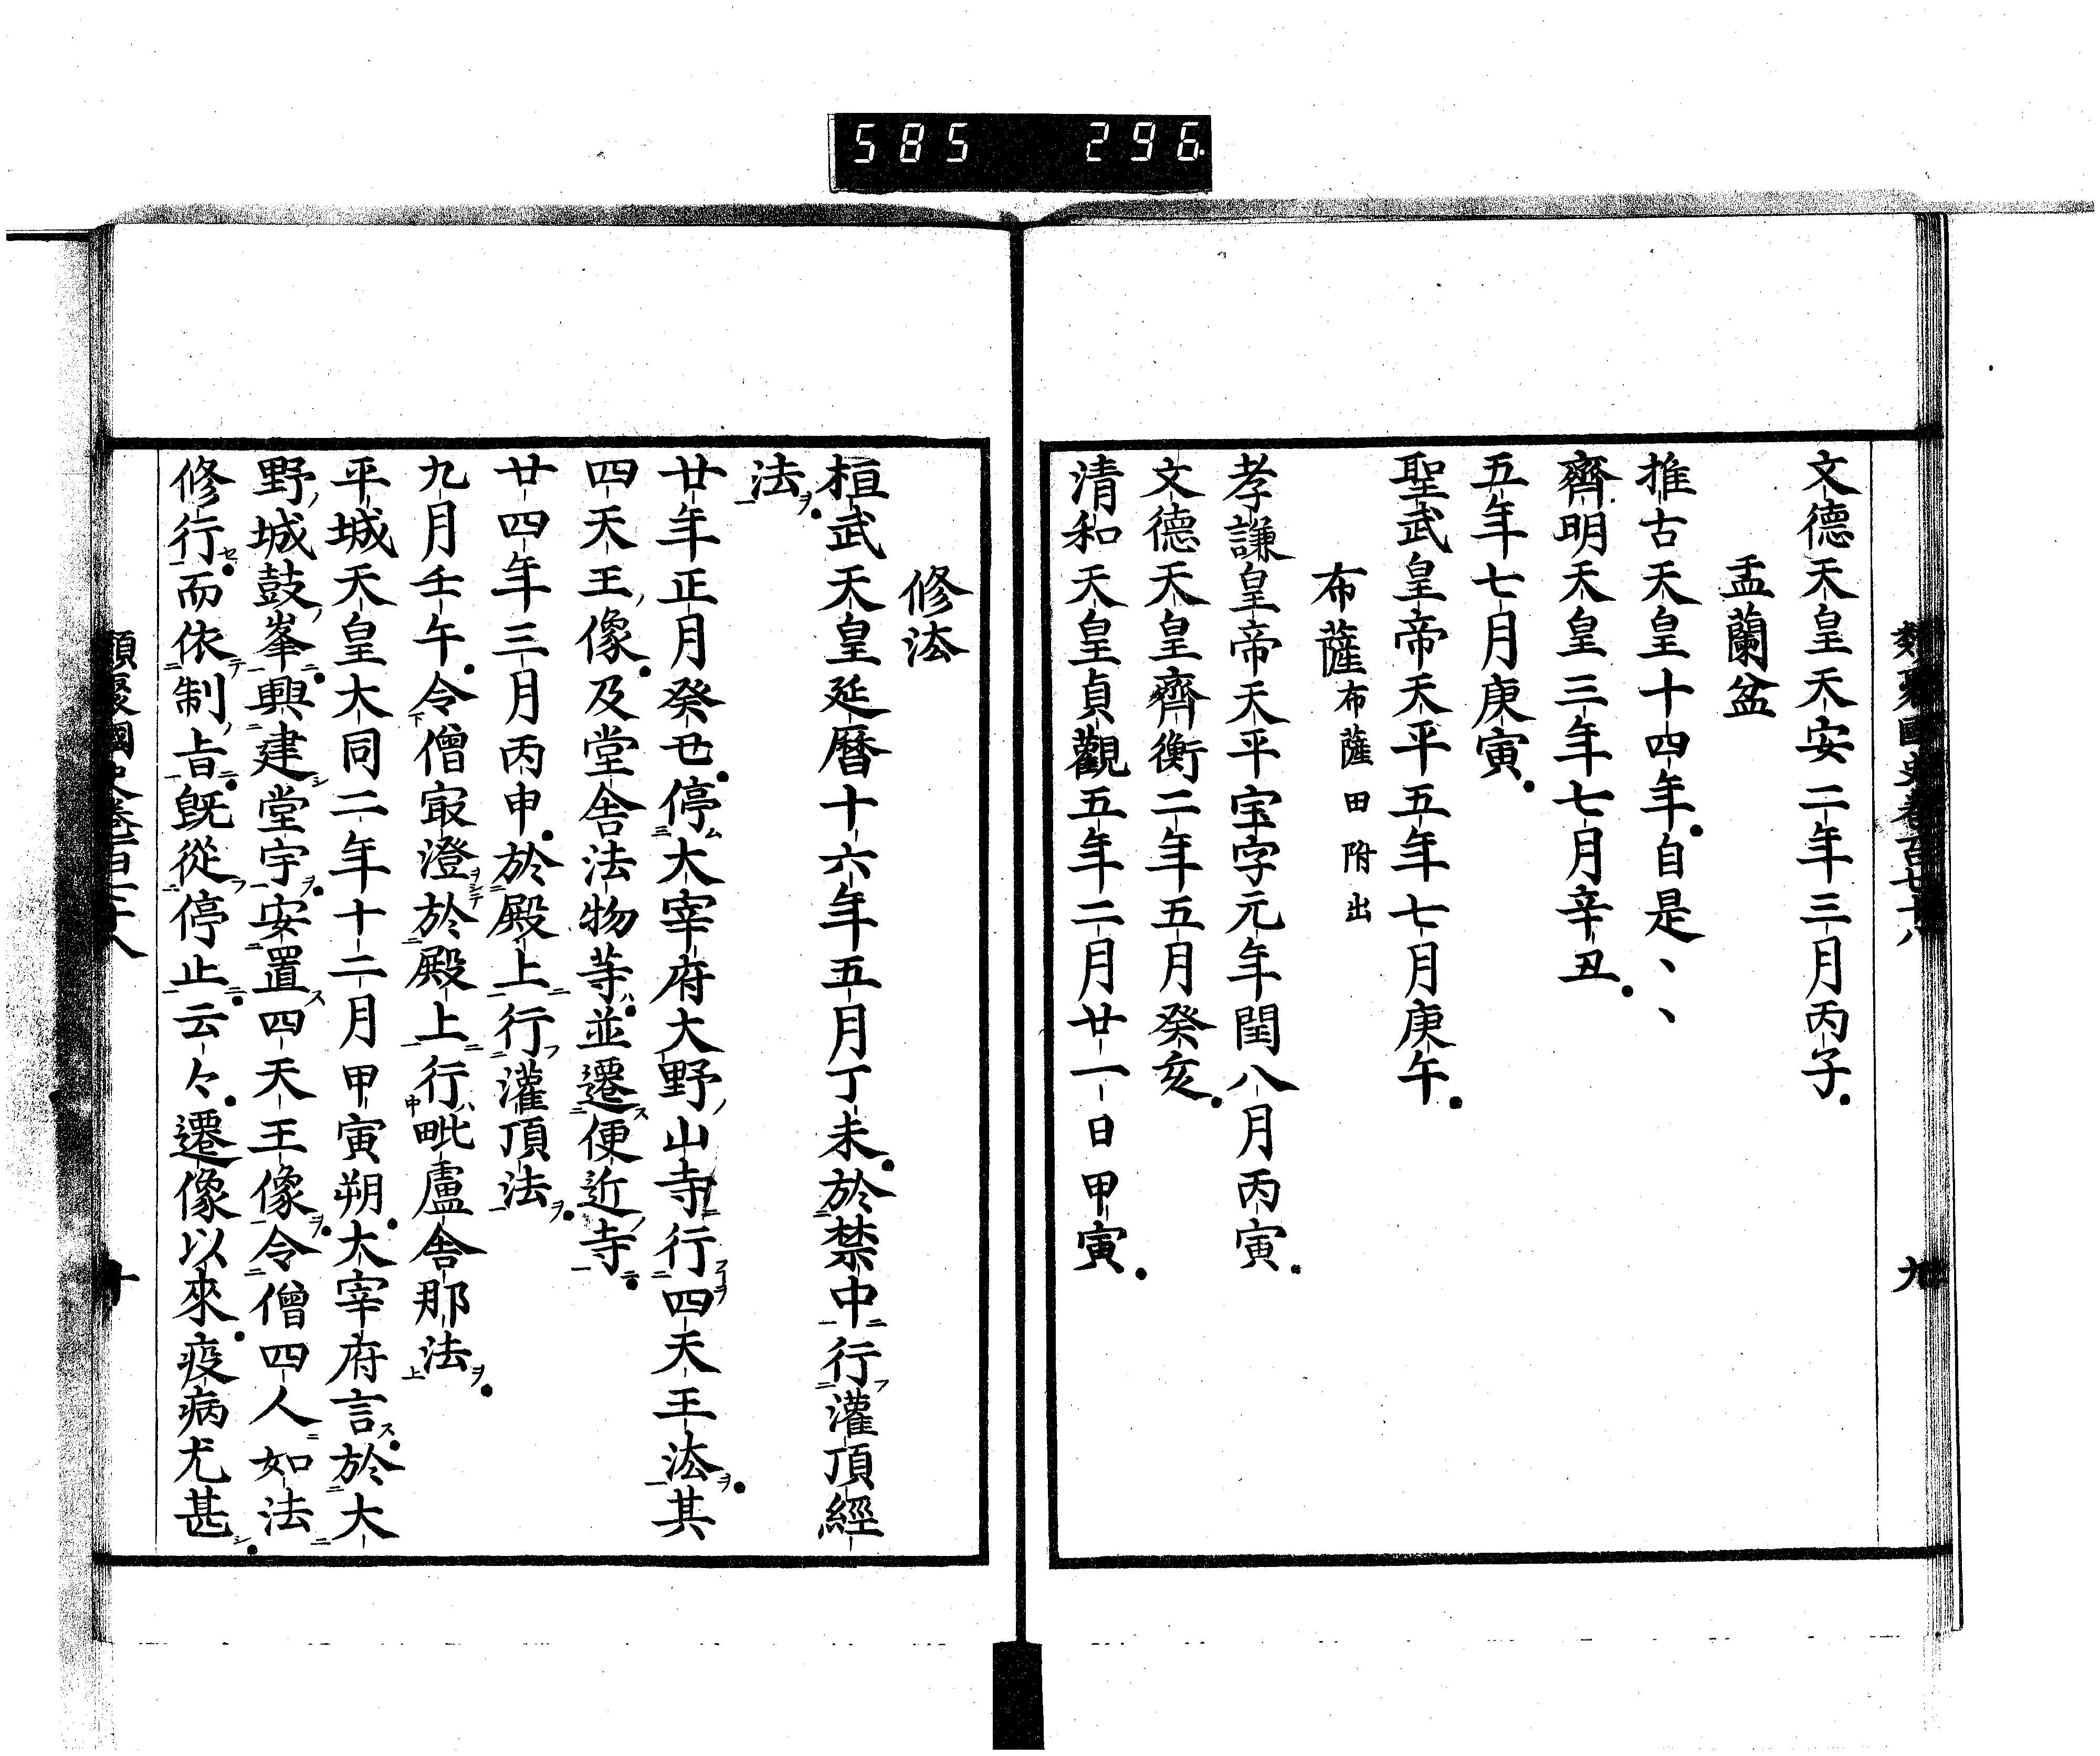 585 296
類聚國史卷百七十八 九
文德天皇天安二年三月丙子
盂蘭盆
推古天皇十四年自是、、
齊明天皇三年七月辛丑
五年七月庚寅
聖武皇帝天平五年七月庚午
布薩 布薩田附出
孝謙皇帝天平宝字元年閏八月丙寅
文德天皇齊衡二年五月癸亥
清和天皇貞觀五年二月廿一日甲寅
修法
桓武天皇延曆十六年五月丁未於禁中行灌頂經
法
廿年正月癸丑停大宰府大野山寺行四天王法其
四天王像及堂舎法物等並遷便近寺
廿四年三月丙申於殿上行灌頂法
九月壬午令僧㝡澄於殿上行毗盧舎那法
平城天皇大同二年十二月甲寅朔大宰府言於大
野城鼓峯興建堂宇安置四天王像令僧四人如法
修行而依制旨既從停止云々遷像以來疫病尤甚
類聚國史卷百七十八 十